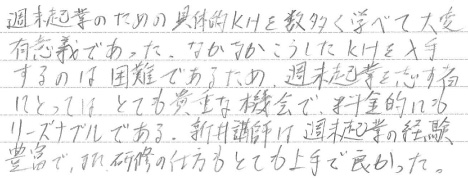 週末起業のための具体的KHを数多く学べて大変
有意義であった。なかなかこうしたKHを入手
するのは困難であるため、週末起業を志す者
にとっては とても貴重な機会で、料金的にも
リーズナブルである。新井講師は週末起業の経験
豊富で、また研修の仕方もとても上手で良かった。